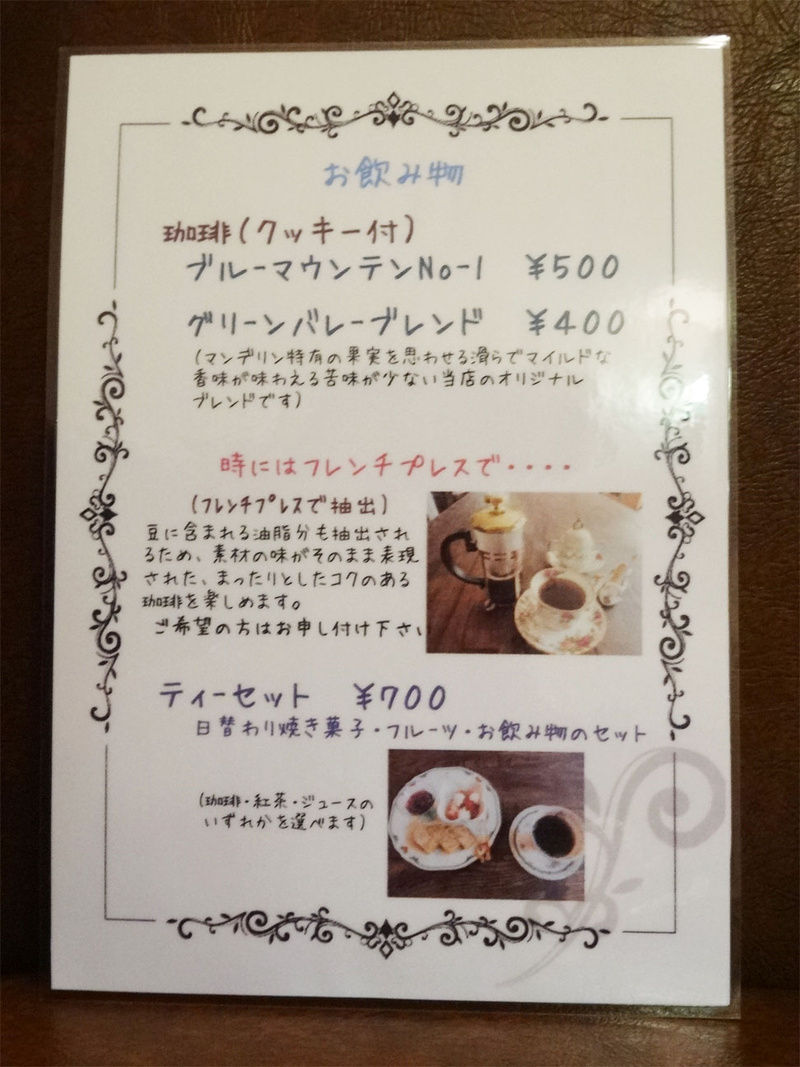 お飲み物
珈琲(クッキー付)
ブルーマウンテンNo-1 ¥500
グリーンバレーブレンド ¥400
(マンデリン特有の果実を思わせる滑らでマイルドな
香味が味わえる苦味が少ない当店のオリジナル
ブレンドです)
時にはフレンチプレスで・・・・
(フレンチプレスで抽出)
豆に含まれる油脂分も抽出され
るため、素材の味がそのまま表現
された、まったりとしたコクのある
珈琲を楽しめます。
ご希望の方はお申し付け下さい
ティーセット ¥700
日替わり焼き菓子・フルーツ・お飲み物のセット
(珈琲・紅茶・ジュースの
いずれかを選べます)